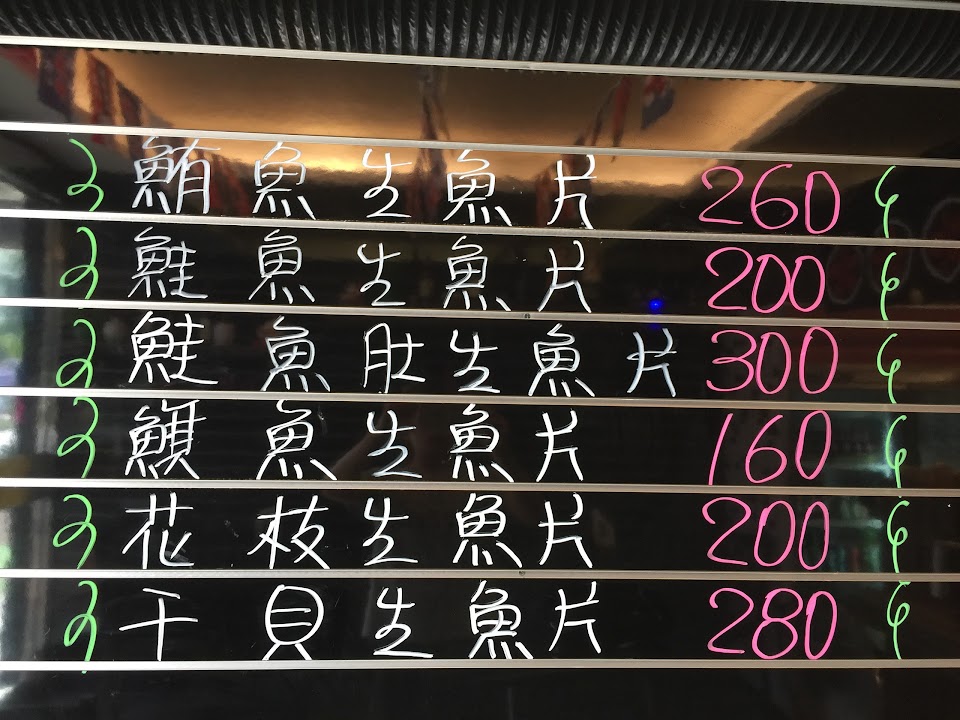 鮪魚生魚片 260
鮭魚生魚片 200
鮭魚肚生魚片 300
旗魚生魚片 160
花枝生魚片 200
干貝生魚片 280